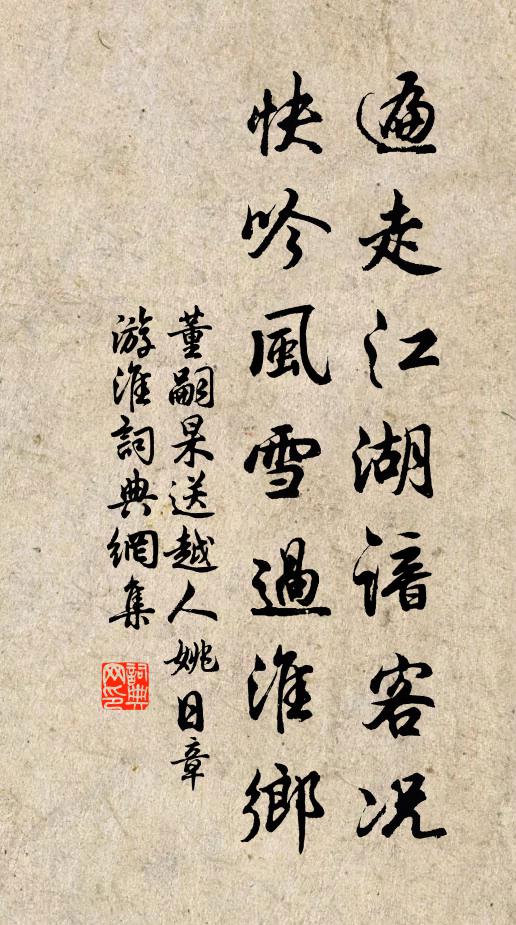 遍走江湖諳客况
快吟風雪過淮鄉
董嗣杲送越人姚日章
游淮詞典網集
詞典网印